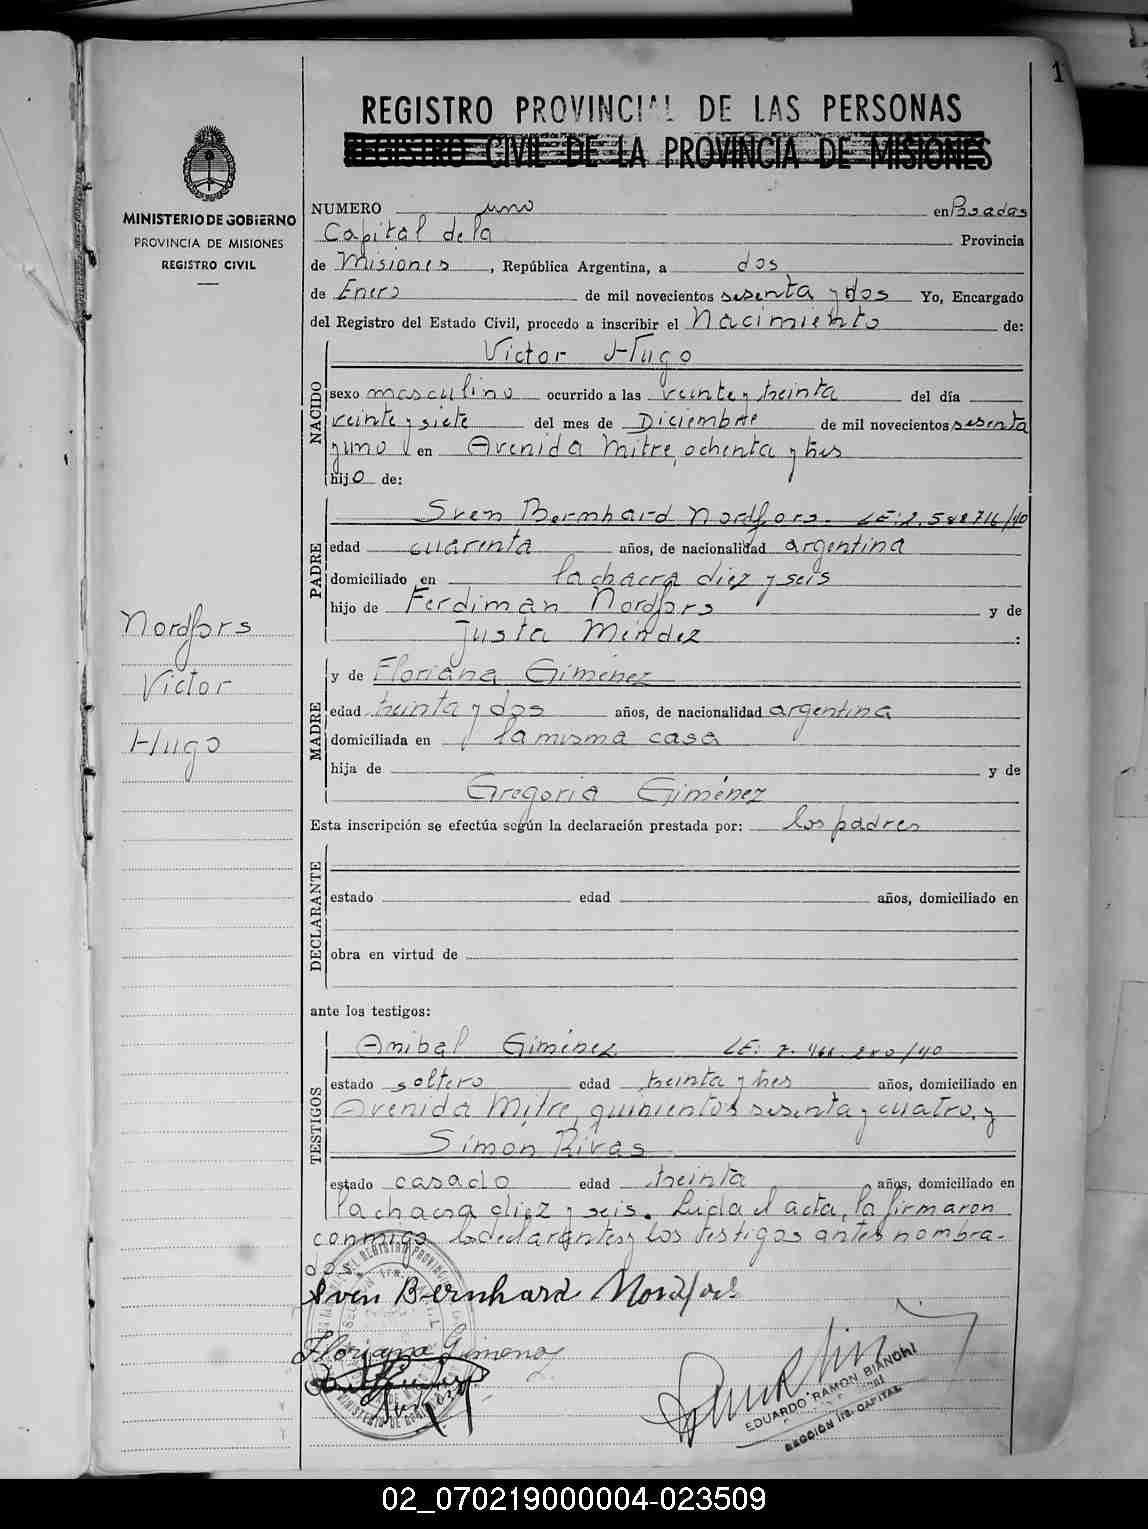 1
REGISTRO PROVINCIAL DE LAS PERSONAS
REGISTRO CIVIL DE LA PROVINCIA DE MISIONES
MINISTERIO DE GOBIERNO
PROVINCIA DE MISIONES
REGISTRO CIVIL
Nordfors
Victor
Hugo
NUMERO uno en Posadas
Capital de la Provincia
de Misiones, República Argentina, a dos
de Enero de mil novecientos sesenta y dos Yo, Encargado
del Registro del Estado Civil, procedo a inscribir el Nacimiento de:
NACIDO
Victor Hugo
sexo masculino ocurrido a las veinte y treinta del día
veinte y siete del mes de Diciembre de mil novecientos sesenta
y uno en Avenida Mitre, ochenta y tres
hijo de:
PADRE
Sven Bernhard Nordfors. LE:
edad cuarenta años, de nacionalidad argentina
domiciliado en la chacra diez y seis
hijo de Ferdiman Nordfors y de
Justa Méndez :
MADRE
y de Floriana Giménez
edad treinta y dos años, de nacionalidad argentina
domiciliada en la misma casa
hija de y de
Gregoria Giménez
Esta inscripción se efectúa según la declaración prestada por: los padres
DECLARANTE
estado edad años, domiciliado en
obra en virtud de
ante los testigos:
TESTIGOS
Anibal Giménez LE:
estado soltero edad treinta y tres años, domiciliado en
Avenida Mitre, quinientos sesenta y cuatro, y
Simón Rivas
estado casado edad treinta años, domiciliado en
la chacra diez y seis. Leida el acta, la firmaron
conmigo los declarantes y los testigos antes nombra-
dos.
Sven Bernhard Nordfors
Floriana Gimenez
EDUARDO RAMON BIANCHI
SECCION 1ra. CAPITAL
02_070219000004-023509